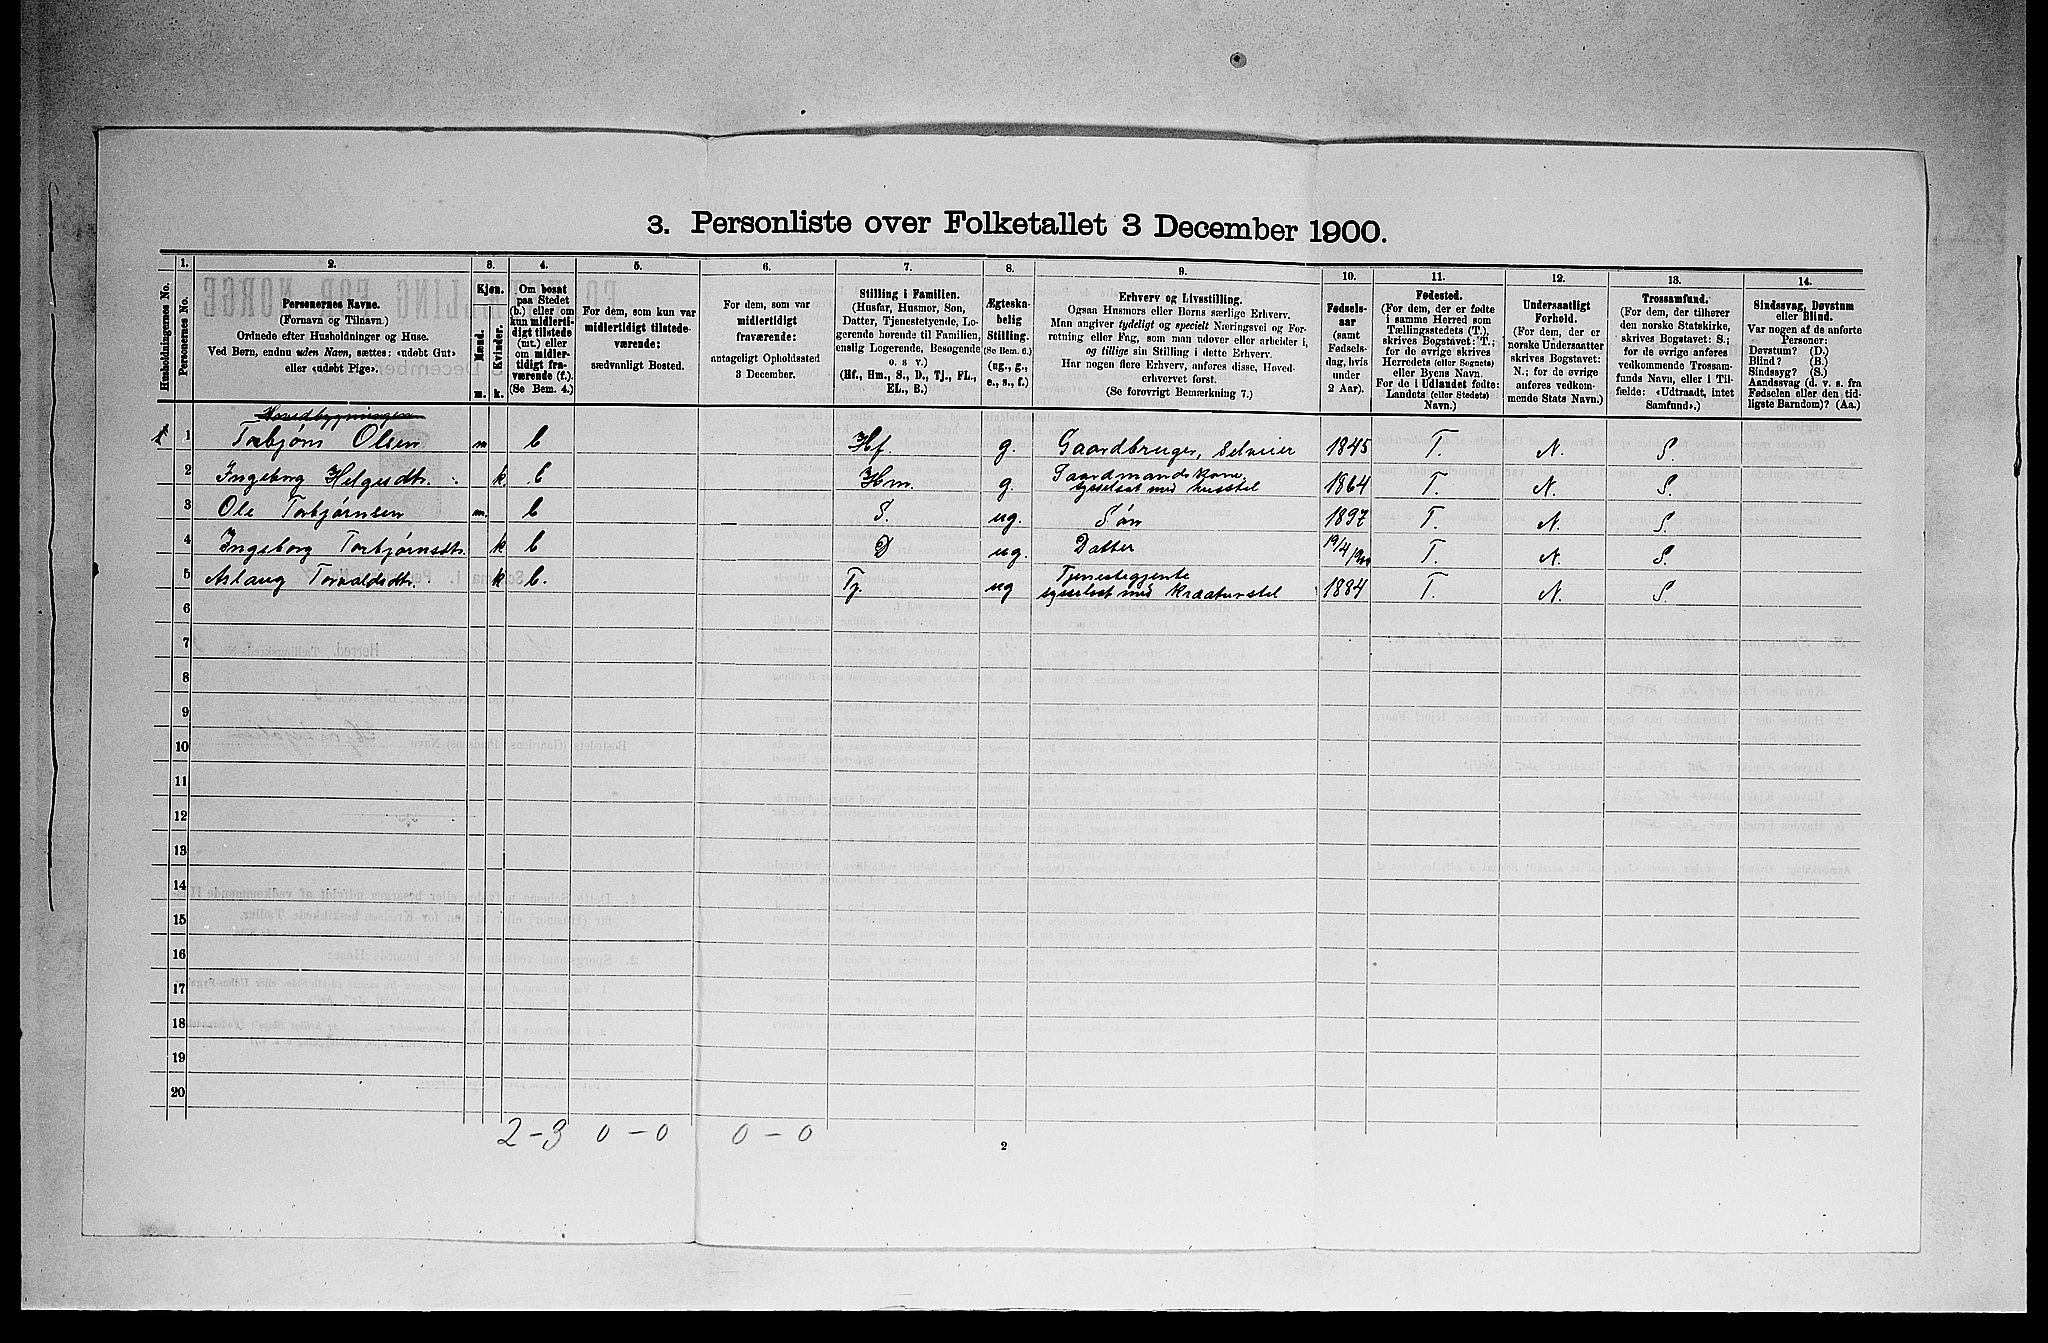 3. Personliste over Folketallet 3 December 1900.
1. 2. 3. 4. 5. 6. 7. 8. 9. 10. 11. 12. 13. 14.
Husholdningernes No.
Personernes No.
Personernes Navne.
(Fornavn og Tilnavn.)
Ordnede efter Husholdninger og Huse.
Ved Børn, endnu uden Navn, sættes: «udøbt Gut»
eller «udøbt Pige».
Kjøn.
Mænd.
Kvinder.
m. k.
Om bosat
paa Stedet
(b.) eller om
kun midlerti-
digt tilstede
(mt.) eller
om midler-
tidigt fra-
værende (f.)
(Se Bem. 4.)
For dem, som kun var
midlertidigt tilstede-
værende:
sædvanligt Bosted.
For dem, som var
midlertidigt
fraværende:
antageligt Opholdssted
3 December.
Stilling i Familien.
(Husfar, Husmor, Søn,
Datter, Tjenestetyende, Lo-
gerende hørende til Familien,
enslig Logerende, Besøgende
o. s. v.)
(Hf., Hm., S., D., Tj., FL.,
EL., B.)
Ægteska-
belig
Stilling.
(Se Bem. 6.)
(ug., g.,
e., s., f.)
Erhverv og Livsstilling.
Ogsaa Husmors eller Børns særlige Erhverv.
Man angiver tydeligt og specielt Næringsvei og For-
retning eller Fag, som man udøver eller arbeider i,
og tillige sin Stilling i dette Erhverv.
Har nogen flere Erhverv, anføres disse, Hoved-
erhvervet først.
(Se forøvrigt Bemærkning 7.)
Fødsels-
aar
(samt
Fødsels-
dag, hvis
under
2 Aar).
Fødested.
(For dem, der er fødte
i samme Herred som
Tællingsstedets (T.),
skrives Bogstavet: T.;
for de øvrige skrives
Herredets (eller Sognets)
eller Byens Navn.
For de i Udlandet fødte:
Landets (eller Stedets)
Navn.)
Undersaatligt
Forhold.
(For dem, der er
norske Undersaatter
skrives Bogstavet:
N.; for de øvrige
anføres vedkom-
mende Stats Navn.)
Trossamfund.
(For dem, der tilhører
den norske Statskirke,
skrives Bogstavet: S.;
for de øvrige anføres
vedkommende Trossam-
funds Navn, eller i Til-
fælde: «Udtraadt, intet
Samfund».)
Sindssvag, Døvstum
eller Blind.
Var nogen af de anførte
Personer:
Døvstum? (D.)
Blind? (B.)
Sindssyg? (S.)
Aandssvag (d. v. s. fra
Fødselen eller den tid-
ligste Barndom)? (Aa.)
Hovedbygningen
1 1 Torbjørn Olsen m b Hf. g. Gaardbruger, Selveier 1845 T. N. S.
2 Ingeborg Helgesdtr. k b Hm. g. Gaardmandskone, sysselsat med husstel 1864 T. N. S.
3 Ole Torbjørnsen m. b S. ug. Søn 1897 T. N. S.
4 Ingeborg Torbjørnsdtr. k b D ug. Datter 19/4 1900 T. N. S.
5 Aslaug Torvaldsdtr. k b. Tj. ug Tjenestegjente sysselsat med Kreaturstel 1884 T. N. S.
6
7
8
9
10
11
12
13
14
15
16
17
18
19
20
2 - 3 0 - 0 0 - 0
2